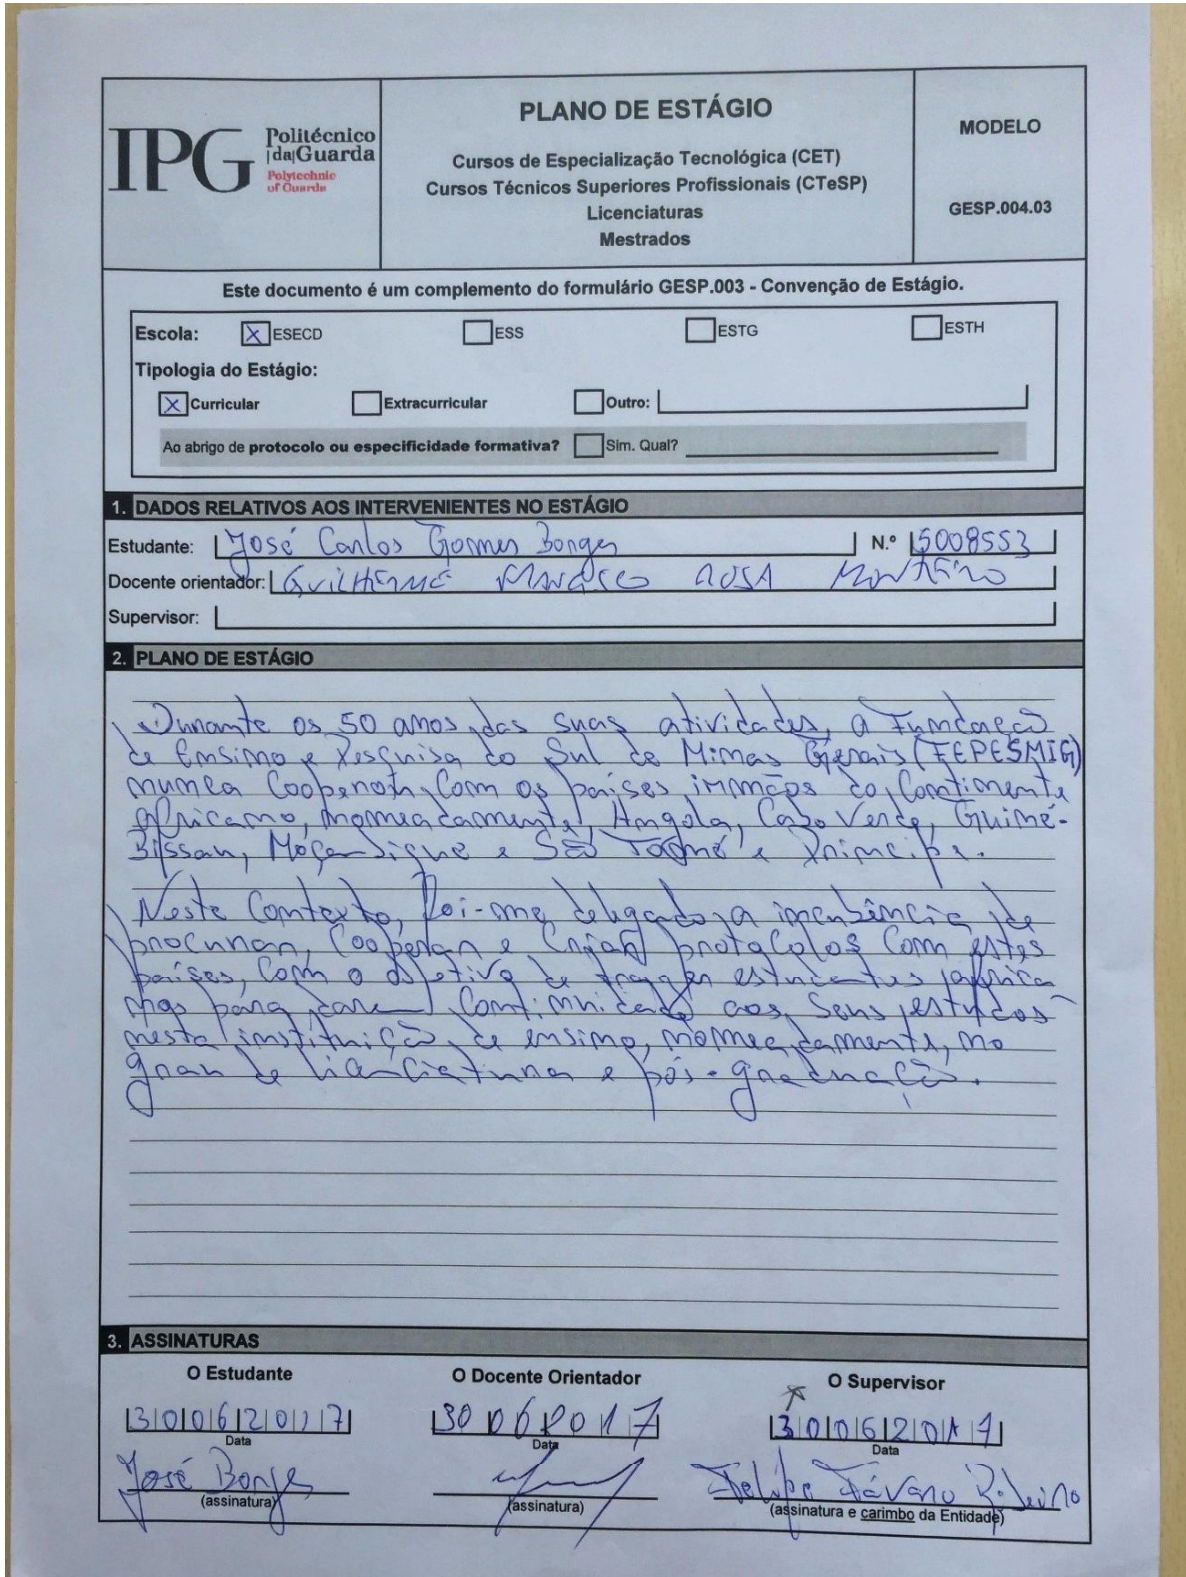 IPG
Politécnico
|da|Guarda
Polytechnic
of Guarda
PLANO DE ESTÁGIO
Cursos de Especialização Tecnológica (CET)
Cursos Técnicos Superiores Profissionais (CTeSP)
Licenciaturas
Mestrados
MODELO
GESP.004.03
Este documento é um complemento do formulário GESP.003 - Convenção de Estágio.
Escola: X ESECD ESS ESTG ESTH
Tipologia do Estágio:
X Curricular Extracurricular Outro:
Ao abrigo de protocolo ou especificidade formativa? Sim. Qual?
1. DADOS RELATIVOS AOS INTERVENIENTES NO ESTÁGIO
Estudante: José Carlos Gomes Borges N.º 5008553
Docente orientador: GUILHERME ROSA MONTEIRO
Supervisor:
2. PLANO DE ESTÁGIO
Durante os 50 anos das suas atividades, a Fundação
de Ensino e Pesquisa do Sul de Minas Gerais (FEPESMIG)
nunca Cooperou, Com os países irmãos do Continente
Africano, nomeadamente, Angola, Cabo Verde, Guiné-
Bissau, Moçambique e São Tomé e Príncipe.
Neste Contexto, foi-me delegado a incubência de
procurar, Cooperar e Criar protocolos Com estes
países, Com o objetivo de trazer estudantes africa
nos para darem Continuidade aos Seus estudos
nesta instituição de ensino, nomeadamente, no
grau de licenciatura e pós-graduação.
3. ASSINATURAS
O Estudante
30062017
Data
José Borges
(assinatura)
O Docente Orientador
30062017
Data
(assinatura)
O Supervisor
30062017
Data
Felipe Flávano Ribeiro
(assinatura e carimbo da Entidade)